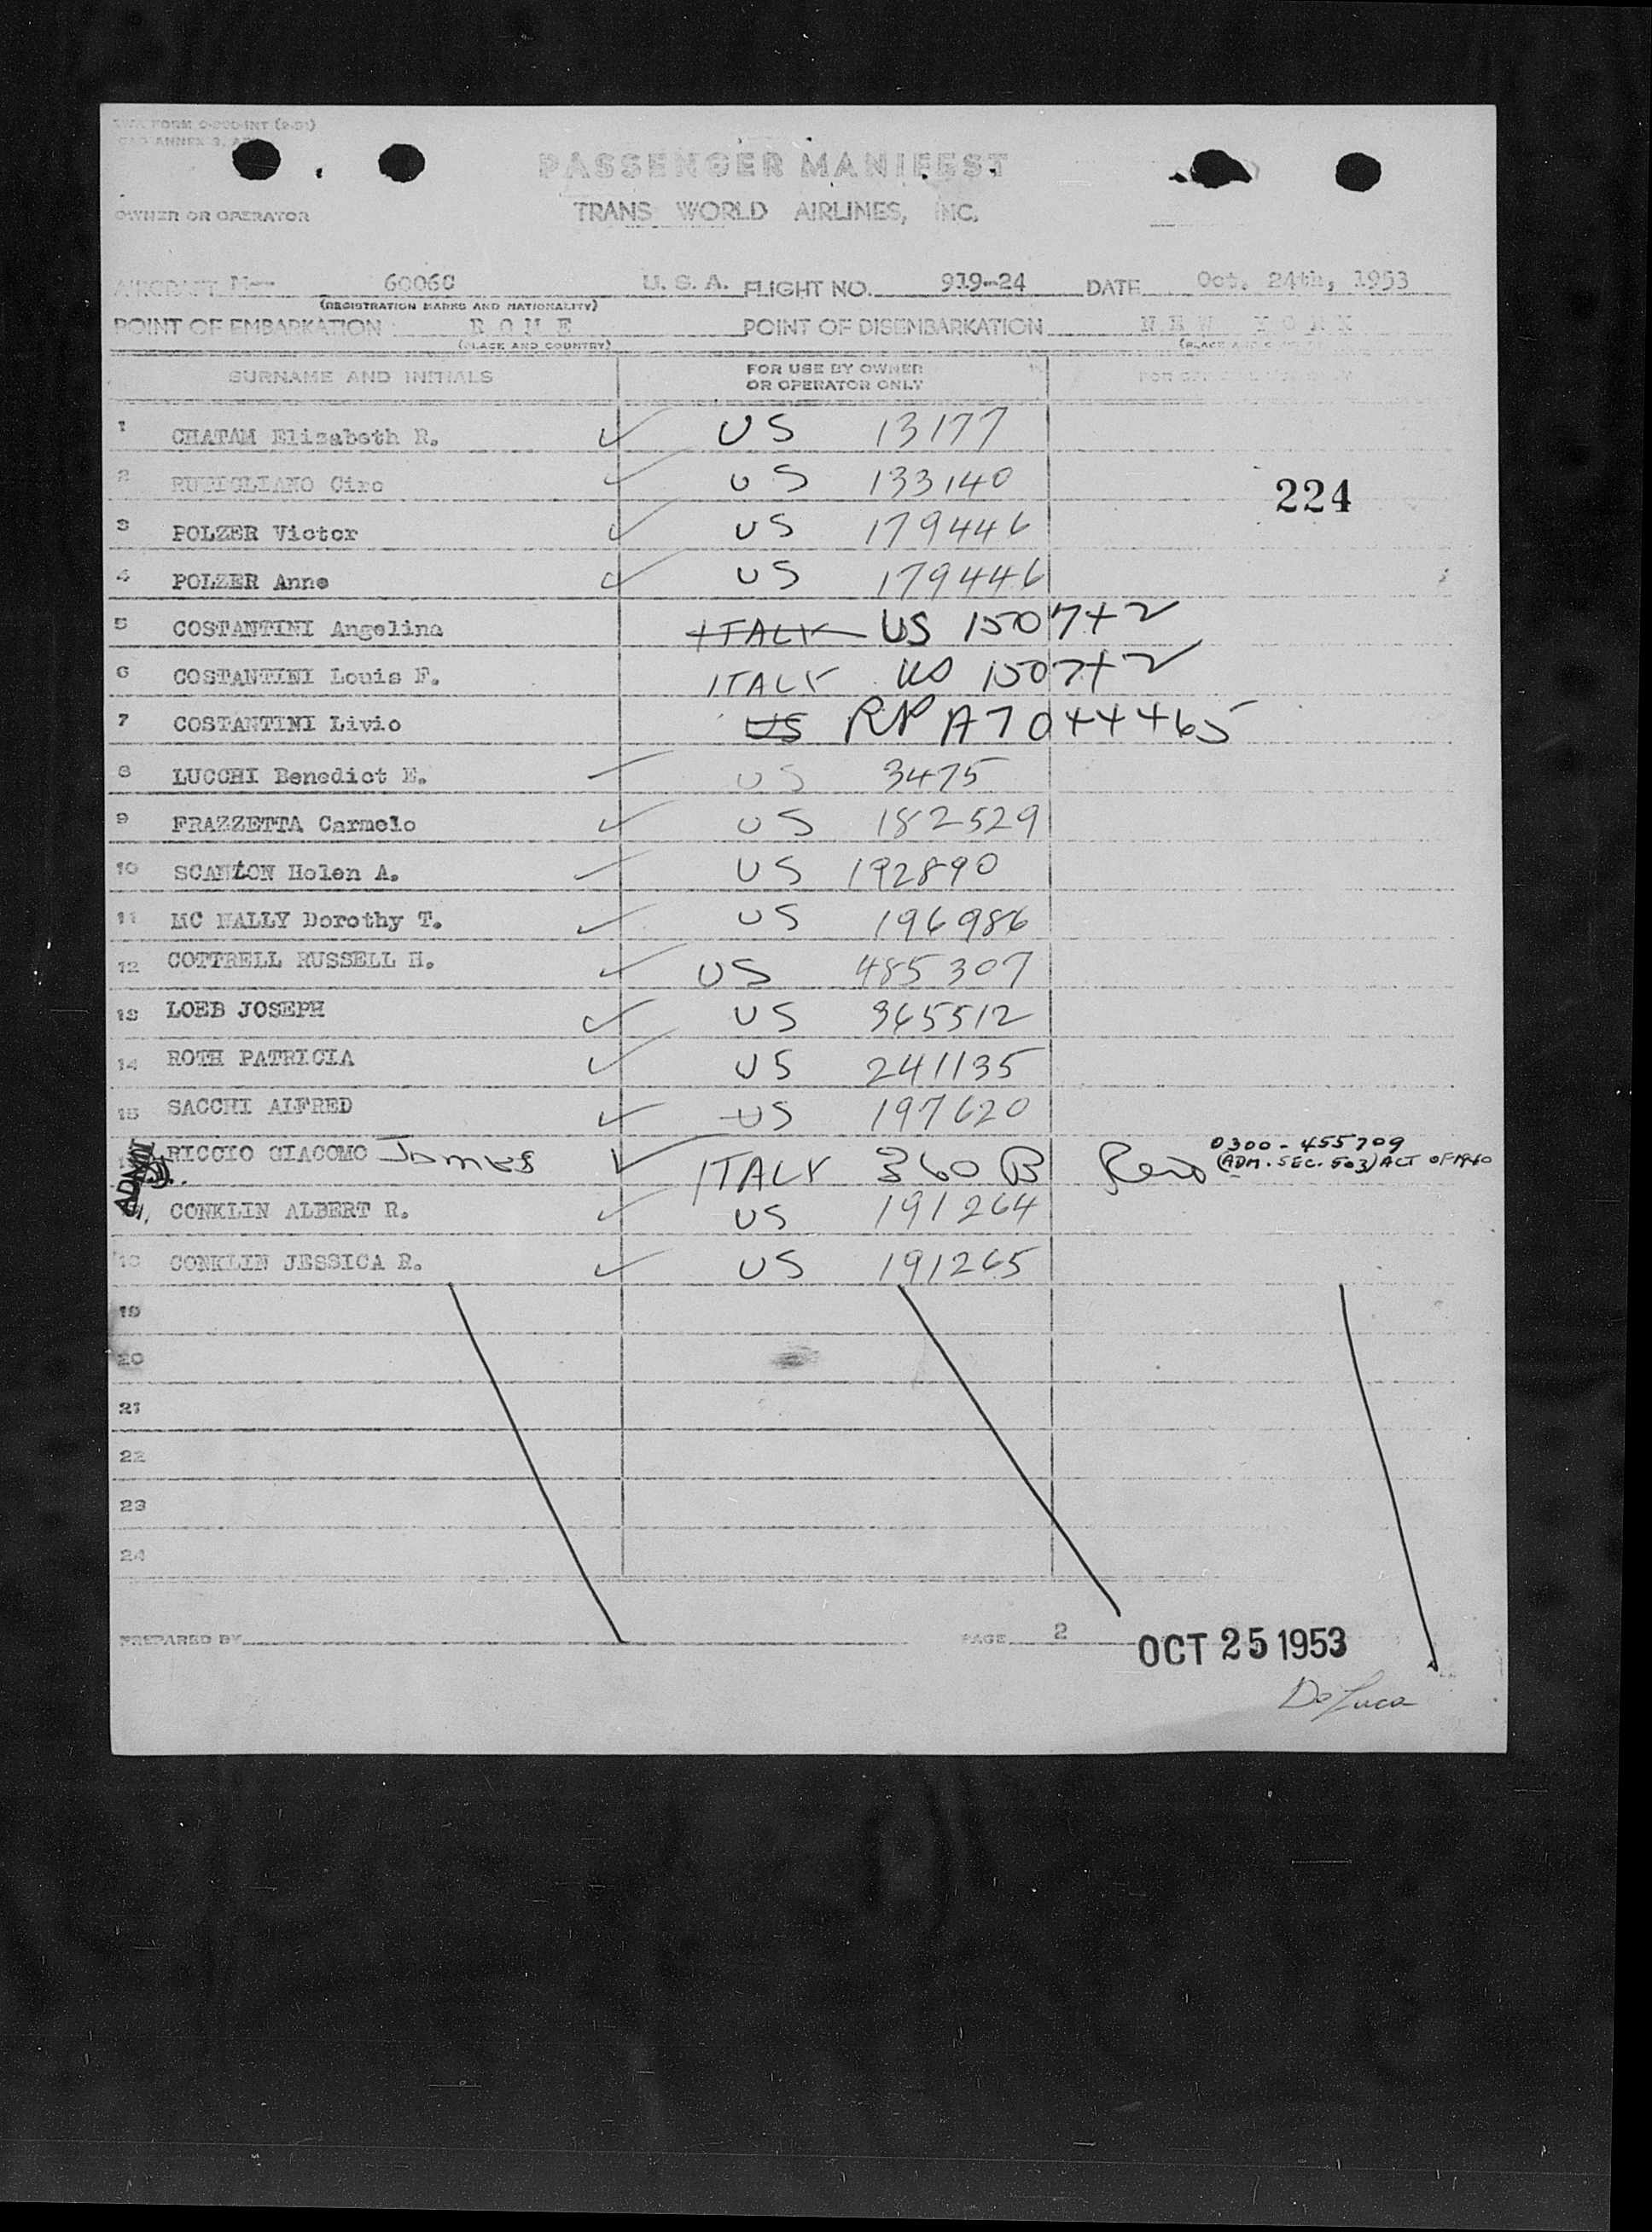 PASSENGER MANIFEST
OWNER OR OPERATOR TRANS WORLD AIRLINES, INC.
AIRCRAFT 6006C U. S. A. FLIGHT NO. 919-24 DATE Oct. 24th, 1953
(REGISTRATION MARKS AND NATIONALITY)
POINT OF EMBARKATION : R O M E POINT OF DISEMBARKATION N E W Y O R K
(PLACE AND COUNTRY)
SURNAME AND INITIALS FOR USE BY OWNER OR OPERATOR ONLY
1 CHATAM Elizabeth R. ✓ US 13177
2 Ciro ✓ US 133140
224
3 POLZER Victor ✓ US 179446
4 POLZER Anne ✓ US 179446
5 COSTANTINI Angelina ITALY US 150742
6 COSTANTINI Louis F. ITALY US 150742
7 COSTANTINI Livio US RP A7044465
8 LUCCHI Benedict E. US 3475
9 FRAZZETTA Carmelo ✓ US 182529
10 SCANLON Helen A. US 192890
11 MC NALLY Dorothy T. ✓ US 196986
12 COTTRELL RUSSELL H. ✓ US 485307
13 LOEB JOSEPH ✓ US 365512
14 ROTH PATRICIA ✓ US 241135
15 SACCHI ALFRED ✓ US 197620
0300-455709
RICCIO GIACOMO James ✓ ITALY 360 B (ADM. SEC. 503) ACT OF 1940
CONKLIN ALBERT R. ✓ US 191264
18 CONKLIN JESSICA R. ✓ US 191265
19
20
21
22
23
24
PREPARED BY PAGE 2
OCT 25 1953
DeLuca